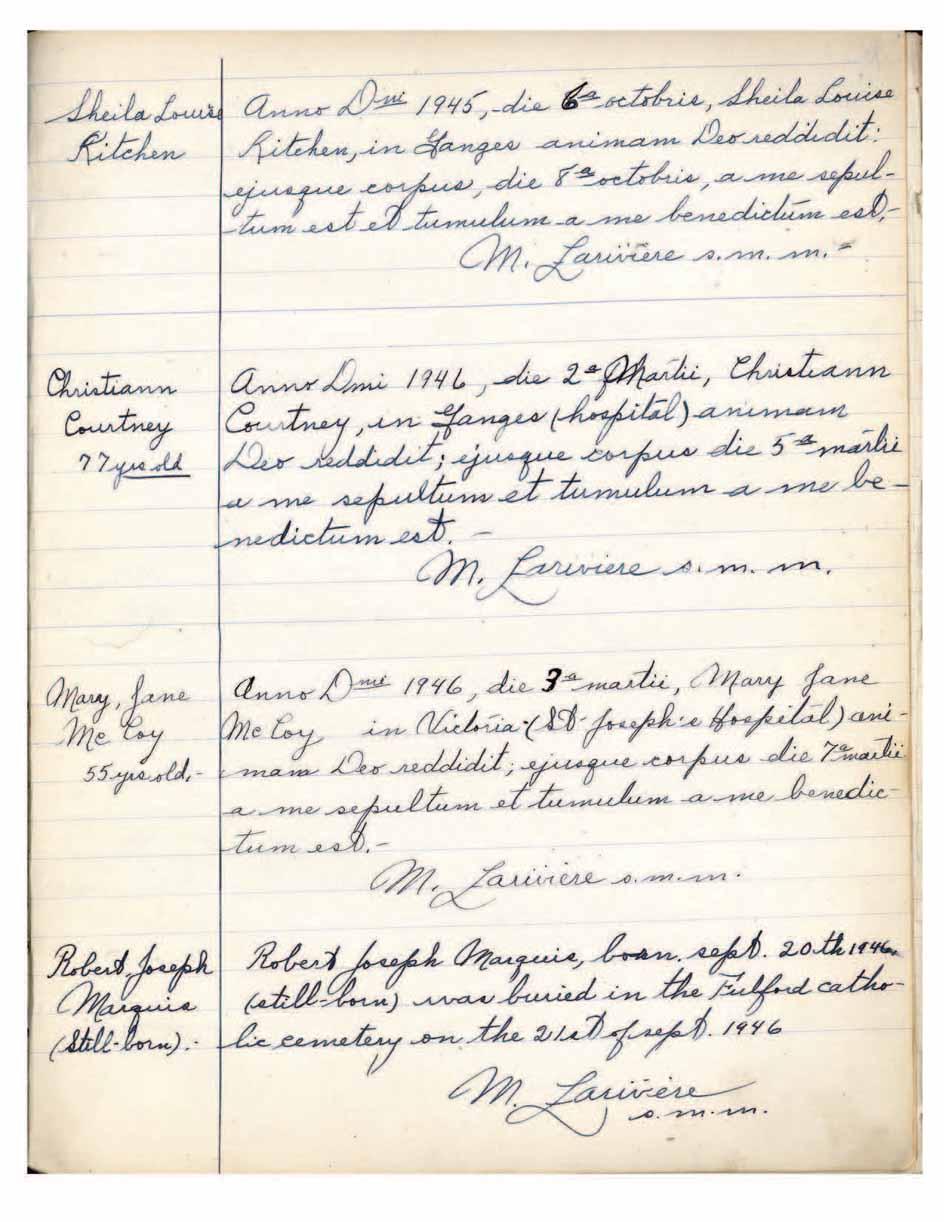 Sheila Louise
Kitchen
Anno Dni 1945, die 6a octobris, Sheila Louise
Kitchen, in Ganges animam Deo reddidit:
ejusque corpus, die 8a octobris, a me sepul-
tum est et tumulum a me benedictum est,-
M. Larivière s.m.m.-
Christiann
Courtney
77 yrs old
Anno Dmi 1946, die 2a Martii, Christiann
Courtney, in Ganges (hospital) animam
Deo reddidit; ejusque corpus die 5a martii
a me sepultum et tumulum a me be-
nedictum est. -
M. Lariviere s.m.m.
Mary, Jane
Mc Coy
55 yrs old.-
Anno Dmi 1946, die 3a martii, Mary Jane
Mc Coy in Victoria-(St-Joseph's Hospital) ani-
mam Deo reddidit; ejusque corpus die 7a martii
a me sepultum et tumulum a me benedic-
tum est.-
M. Larivière s.m.m.
Robert Joseph
Marquis
(Still-born).-
Robert Joseph Marquis, born. sept. 20th 1946
(still-born) was buried in the Fulford catho-
lic cemetery on the 21st of sept. 1946
M. Larivière
s.m.m.